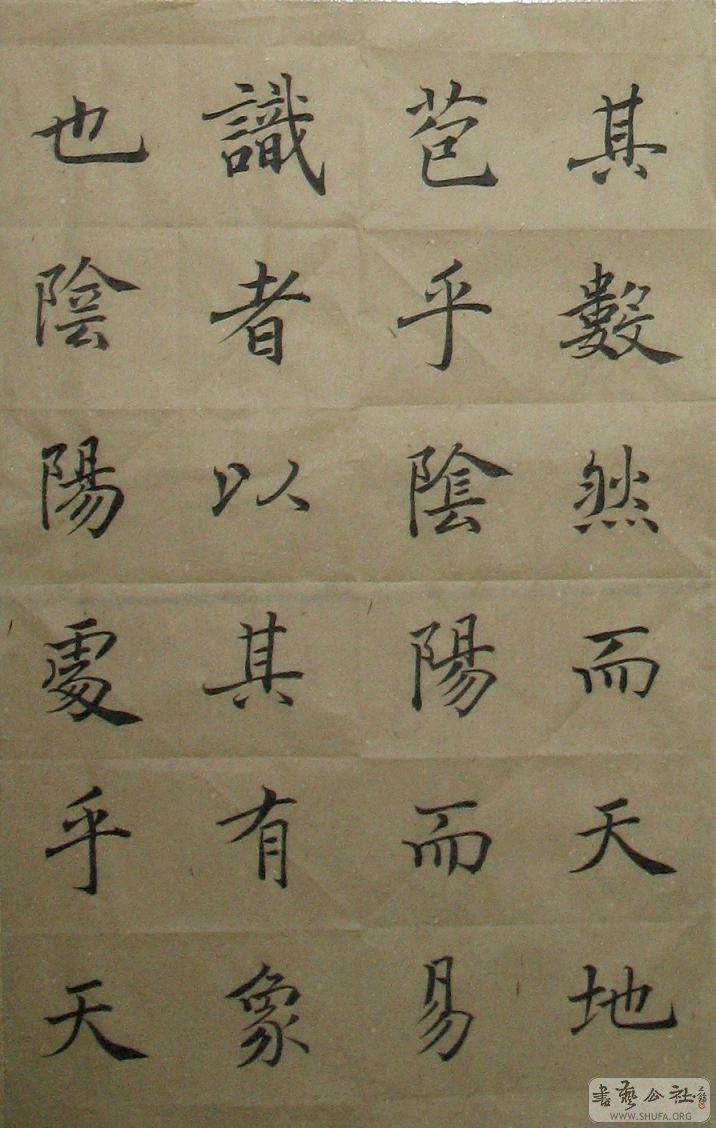 其數然而天地
苞乎陰陽而易
識者以其有象
也陰陽處乎天
書藝公社
WWW.SHUFA.ORG